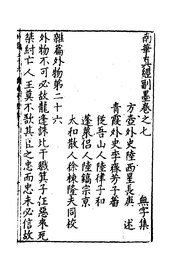 南華真經副墨卷之七　無字集
方壺外史陸西星長庚　述
青霞外史李齊芳子蕃
從吾山人陸律子和
蓬萊侶人陸鎬宗京
太和散人徐棟隆夫同校
雜篇外物第二十六
外物不可必故龍逢誅比干戮箕子狂惡來死
桀紂亡人主莫不欲其臣之忠而忠未必信故